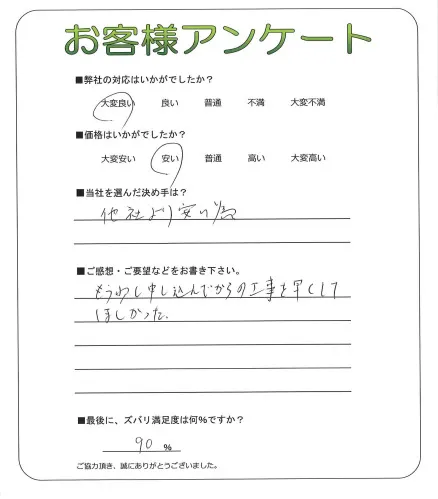 お客様アンケート
■弊社の対応はいかがでしたか？
大変良い 良い 普通 不満 大変不満
■価格はいかがでしたか？
大変安い 安い 普通 高い 大変高い
■当社を選んだ決め手は？
他社より安い為
■ご感想・ご要望などをお書き下さい。
もう少し申し込んでからの工事を早くして
ほしかった.
■最後に、ズバリ満足度は何％ですか？
90 ％
ご協力頂き、誠にありがとうございました。